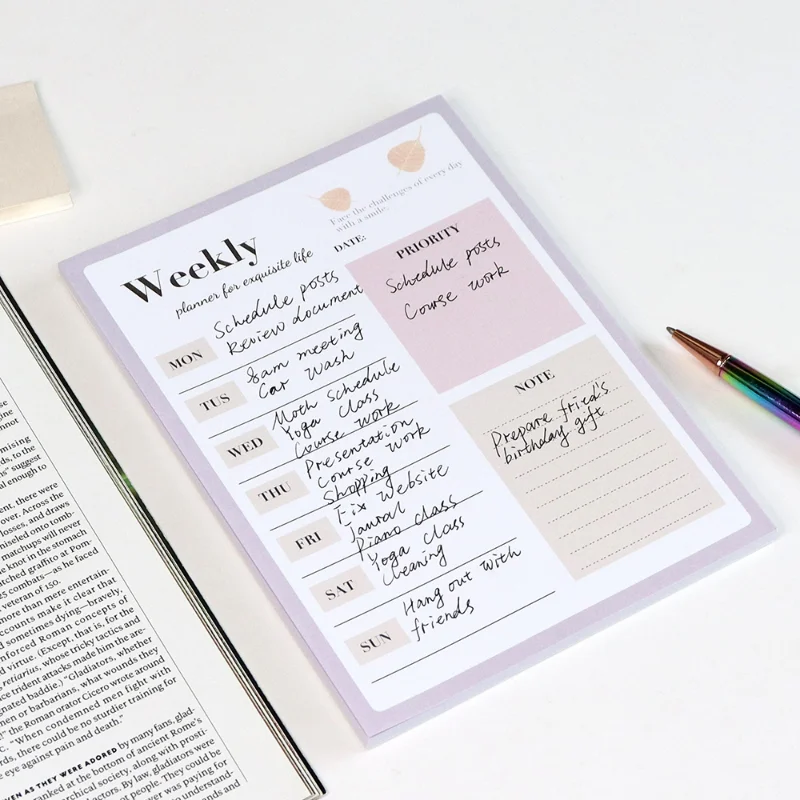 Face the challenges of every day
with a smile.
Weekly
planner for exquisite life
DATE:
MON
Schedule posts
Review document
TUS
8am meeting
Car wash
WED
Moth schedule
Yoga class
Course work
THU
Presentation
Course work
Shopping
FRI
Fix Website
Jaural
Piano class
SAT
Yoga class
cleaning
SUN
Hang out with
friends
PRIORITY
Schedule posts
Course work
NOTE
Prepare fried's
birthday gift
mising
ds, to the
suggest
al enough to
ent, there were
over. Across the
losses, and draws
niseled onto tomb-
natchups will never
he knot in the stomach
tched graffito at Pom-
25 combats—as he faced
veteran of 150.
more than mere entertain-
accounts make it clear that
sometimes dying—bravely,
nforced Roman concepts of
d virtue. (Except, that is, for the
retiarius, whose tricky tactics and
ce trident attacks made him the are-
gnated baddie.) "Gladiators, whether
en or barbarians, what wounds they
the Roman orator Cicero wrote around
C. "When condemned men fight with
rds, there could be no sturdier training for
e eye against pain and death."
VEN AS THEY WERE ADORED by many fans, glad-
ranked at the bottom of ancient Rome's
rarchical society, along with prosti-
actors. By law, gladiators were
They could be
was paying for
understand-
ds and